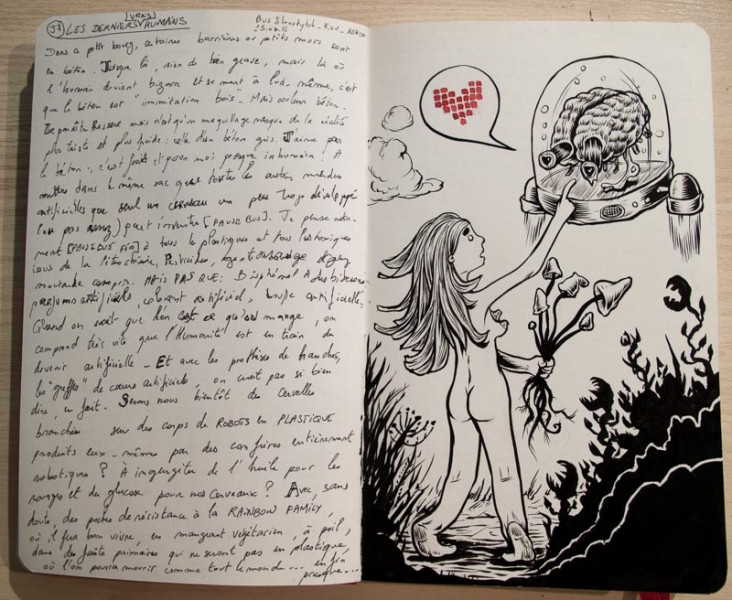 37 LES DERNIERS (VRAIS) HUMAINS
Bus
Dans ce petit bourg, certaines barrières ou petits murs sont
en béton. Jusque là, rien de bien grave, mais là où
l'humain devient bizarre et se ment à lui-même, c'est
que le béton est "immitation bois". Mais ce béton
mais n'est qu'un maquillage masque de la réalité
plus triste et plus froide: celle d'un béton gris. J'aime pas
le béton, c'est froid, et pour moi presque inhumain! A
mettre dans le même sac que toutes les autres merdes
artificielles que seul un cerveau un peu trop développé
(ou pas assez) peut inventer [PAUSE BUS]. Je pense
ment [PAUSE BUS FIN] à tous les plastiques et tous les toxiques
issus de la pétrochimie, Pesticides,
moutarde compris. MAIS PAS QUE: Bisphénol A des biberons
parfums artificiels, colorant artificiel, bouffe artificielle,
Quand on sait que l'on est ce qu'on mange, on
comprend très vite que l'Humanité est en train de
devenir artificielle. Et avec les prothèses de hanches,
les "greffes" de cœurs artificiels, on croit pas si bien
dire, en fait. Serons nous bientôt des Cervelles
branchées sur des corps de ROBOTS en PLASTIQUE
produits eux-même par des confrères entièrement
robotiques? A ingurgiter de l'huile pour les
rouages et du glucose pour nos cerveaux? Avec, sans
doute, des poches de résistance à la RAINBOW FAMILY,
où il fera bon vivre, en mangeant végétarien, à poil,
dans des forêts primaires qui ne seront pas en plastique,
où l'on pourra mourir comme tout le monde... enfin
presque...